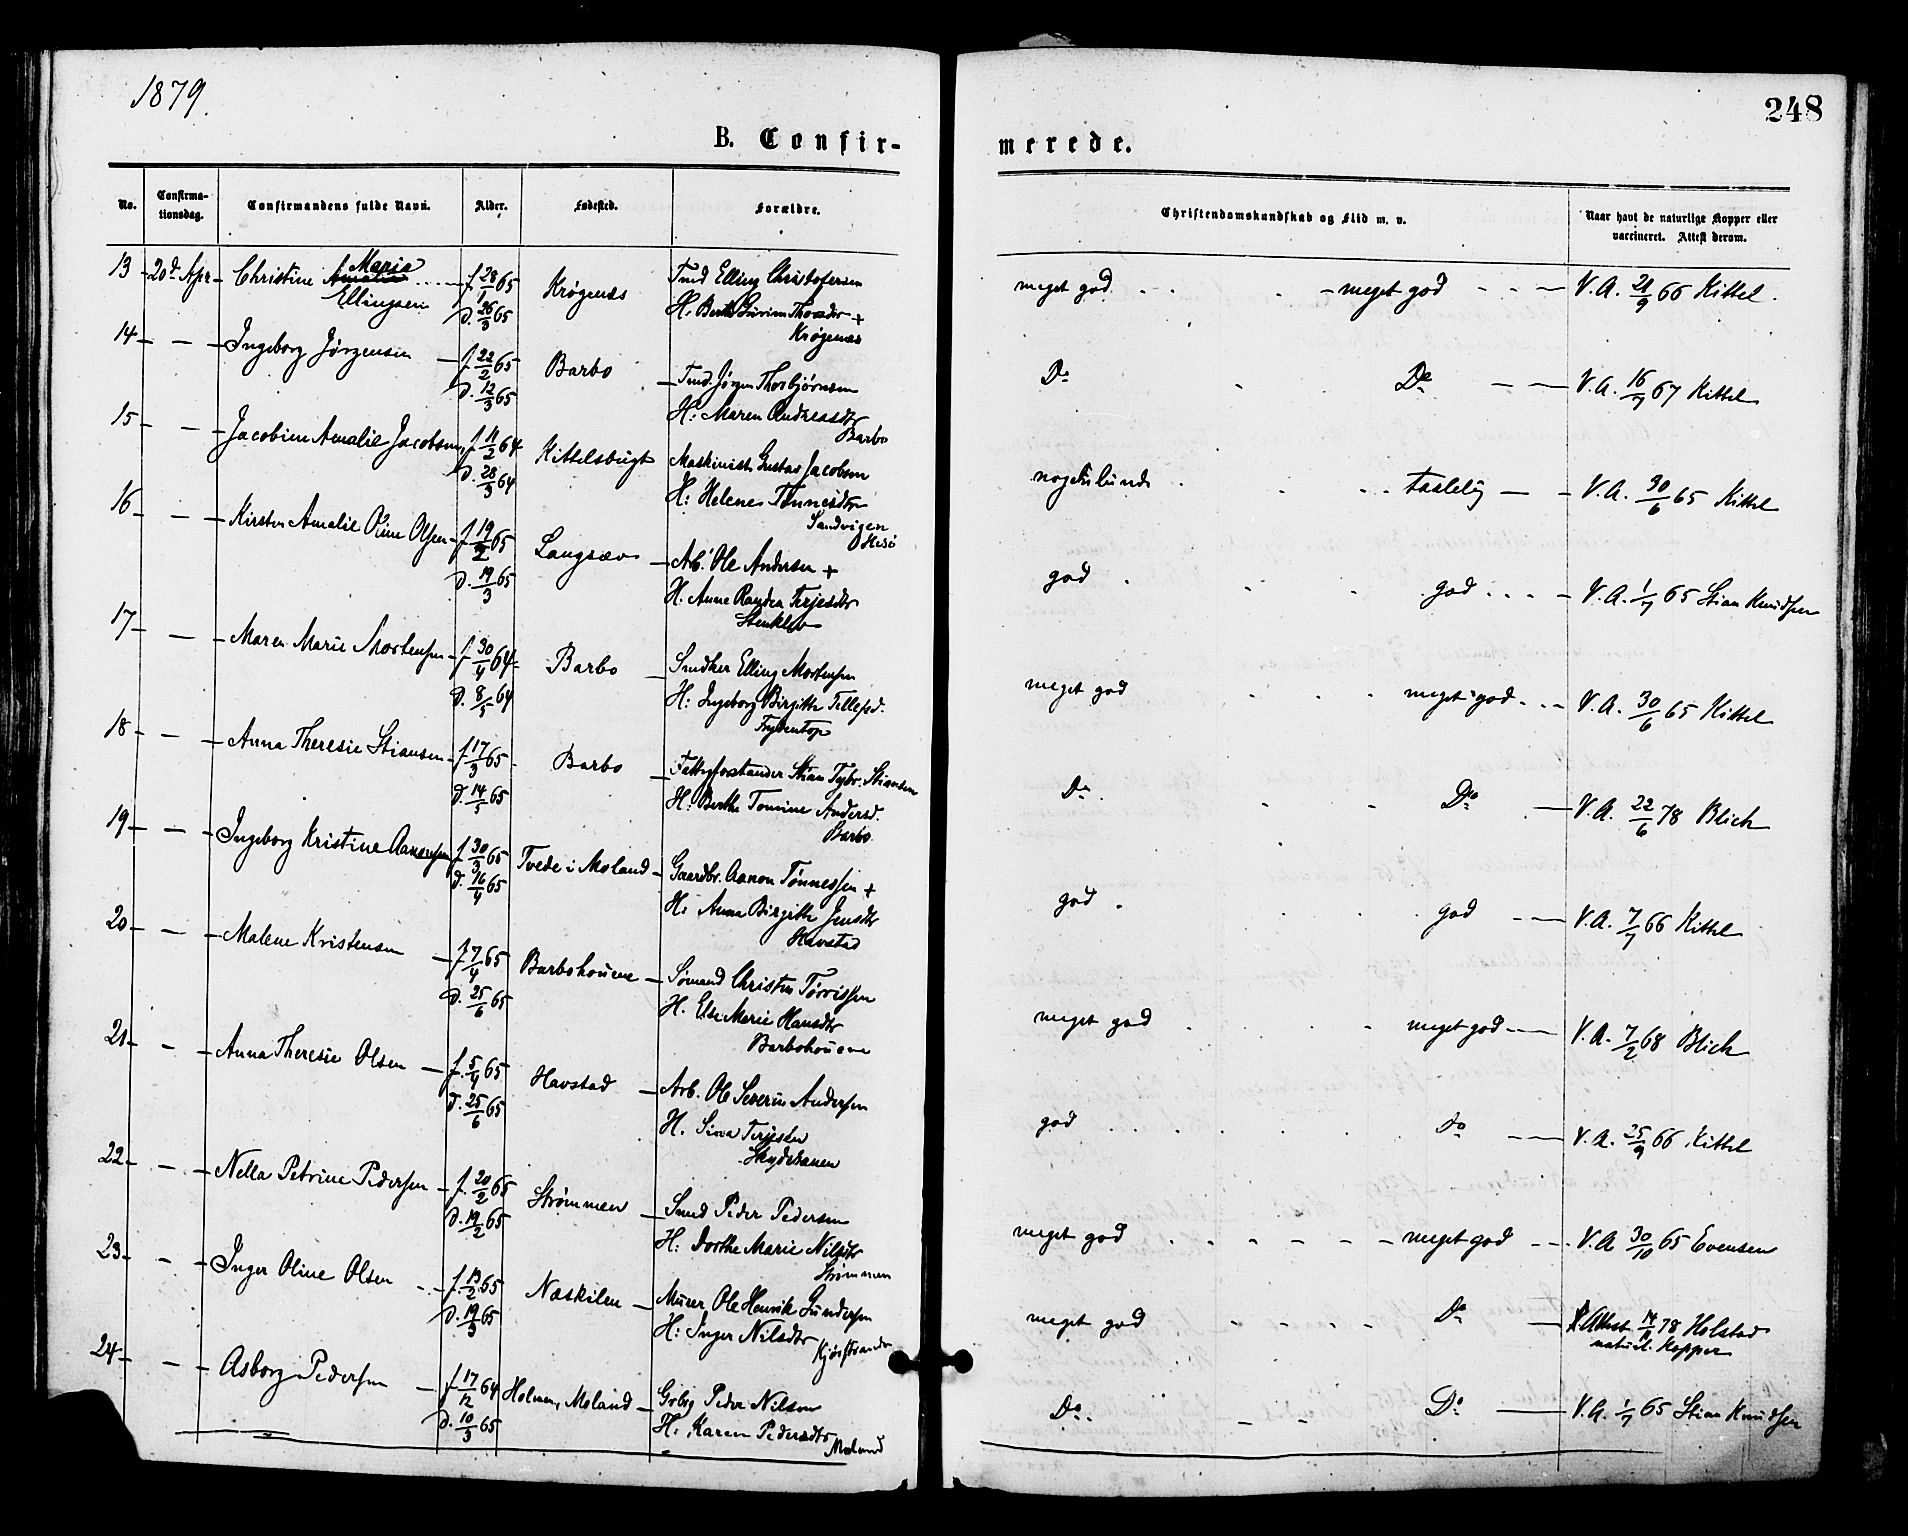 1879.
248
B. Confir-
merede.
No.
Confirma-
tionsdag.
Confirmandens fulde Navn.
Alder.
Fødested.
Forældre.
Christendomskundskab og Flid m. v.
Naar havt de naturlige Kopper eller
vaccineret. Attest derom.
13 - 20de Apr - Christine Amalie Maria
Ellingsen
f 28/1 65
d. 26/3 65
Krøgenes
Tmd Elling Christofersen
H. Berthe Thosdtr +
Krøgenes
meget god
meget god
V.A. 21/9 66 Kittel.
14 - - Ingeborg Jørgensen
f 22/2 65
d. 12/3 65
Barbo
Tmd. Jørgen Thorbjørnsen
H: Maren Andreasdtr
Barbo
Do
Do
V.A. 16/7 67 Kittel
15 - - Jacobine Amalie Jacobsen
f 11/2 64
d. 28/3 64
Kittelsbugt
Maskinist Gustav Jacobsen
H: Helene Tønnesdtr
Sandvigen
Hisø
nogenlunde
taalelig
V.A. 30/6 65 Kittel
16 - - Kirsten Amalie Oline Olsen
f 19/2 65
d. 19/3 65
Langsæv
Arb. Ole Andersen +
H. Anne Randea Terjesdtr
Stenklev
god
god
V.A. 1/7 65 Stian Knudsen
17 - - Maren Marie Mortensen
f 30/4 64
d. 8/5 64
Barbo
Snedker Elling Mortensen
H: Ingeborg Birgitte Tellefsd.
Frydentop
meget god
meget god
V.A. 30/6 65 Kittel
18 - - Anna Theresie Stiansen
f 17/3 65
d. 14/5 65
Barbo
Fattigforstander Stian Tybr. Stiansen
H: Berthe Tomine Andersd.
Barbo
Do
Do
V.A. 22/6 78 Blich
19 - - Ingeborg Kristine Aanonsen
f 30/3 65
d. 16/4 65
Tvede i Moland
Gaardbr. Aanon Tønnessen +
H: Anna Birgitte Jensdtr
Havstad
god
god
V.A. 7/7 66 Kittel
20 - - Malene Kristensen
f 7/4 65
d. 25/6 65
Barbohouene
Sømand Christen Tørrissen
H. Else Marie Hansdtr
Barbohouene
meget god
meget god
V.A. 7/2 68 Blich
21 - - Anna Theresie Olsen
f. 5/4 65
d. 25/6 65
Havstad
Arb. Ole Severin Andersen
H. Sina Terjesdtr
Skydebanen
god
do
V.A. 25/9 66 Kittel
22 - - Nella Petrine Pedersen
f. 20/2 65
d. 19/2 65
Strømmen
Smed Peder Pedersen
H: Dorthe Marie Nilsdtr
Strømmen
meget god
meget god
V.A 30/10 65 Evensen
23 - - Inger Oline Olsen
f. 13/2 65
d. 19/3 65
Næskilen
Murer Ole Henrik Gundersen
H: Inger Nilsdtr
meget god
Do
Attest 14/11 78 Holstad
naturl. Kopper
24 - - Asborg Pedersen
f 17/12 64
d. 10/3 65
Holmen, Moland
Grbrg Peder Nilsen
H: Karen Pedersdtr
Moland
Do
Do
V.A. 1/7 65 Stian Knudsen